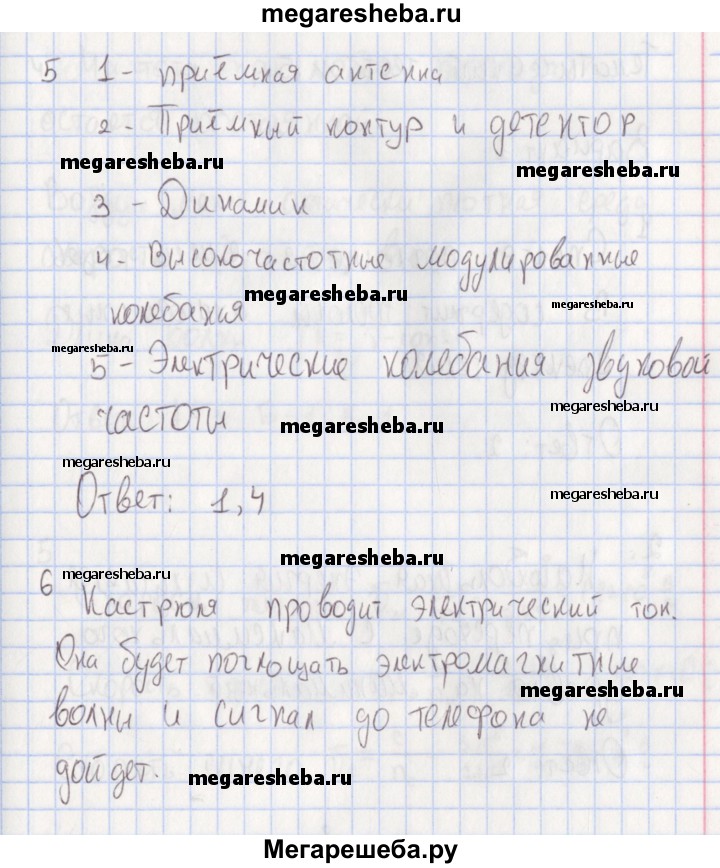 megaresheba.ru
5 1 - приёмная антенна
2 - Приёмный контур и детектор
megaresheba.ru
megaresheba.ru
3 - Динамик
4 - Высокочастотные модулированные
megaresheba.ru
megaresheba.ru
колебания
megaresheba.ru
5 - Электрические колебания звуковой
megaresheba.ru
частоты
megaresheba.ru
megaresheba.ru
Ответ: 1,4
megaresheba.ru
megaresheba.ru
megaresheba.ru
6 Кастрюля проводит электрический ток.
Она будет поглощать электромагнитные
megaresheba.ru
волны и сигнал до телефона не
дойдет.
megaresheba.ru
Мегарешеба.ру